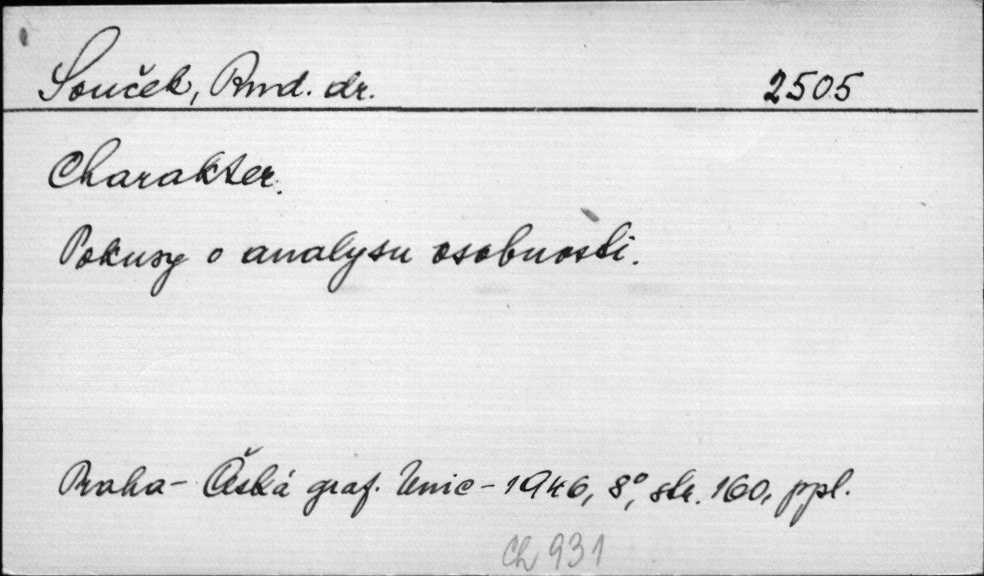 Souček, Rud. dr. 2505
Charakter.
Pokusy o analysu osobnosti.
Praha - Česká graf. Unie - 1946, 8°, str. 160, ppl.
Ch 931